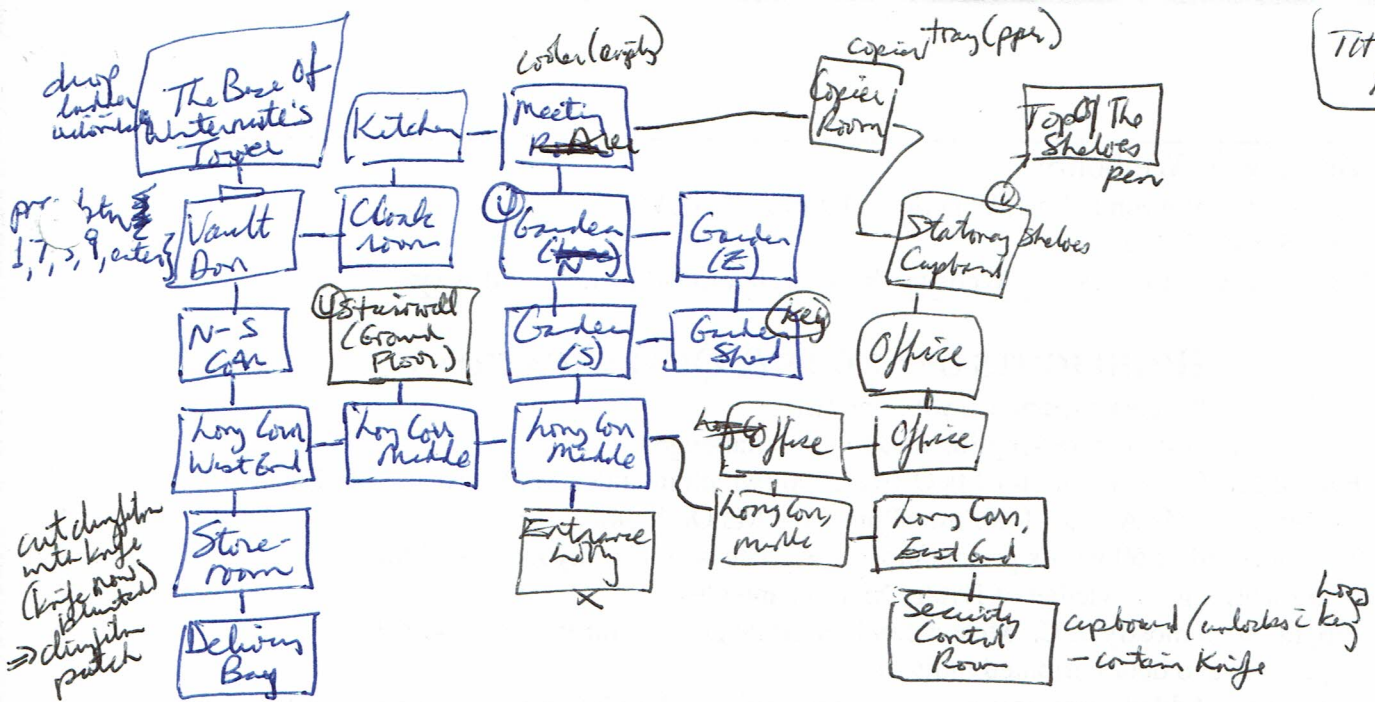 cooler (empty)
copier tray (paper)
drop
ladder
The Base Of
Tower
Kitchen
Meeting
Copier
Room
Top Of The
Shelves
pen
btn
1, 7, 5, 9, enter
Vault
Door
Cloak
room
U
Garden
(N)
Garden
(E)
U
Stationery
Cupboard
shelves
N-S
Corr
U Stairwell
(Ground
Floor)
Garden
(S)
Garden
Shed
Key
Office
Long Corr
West End
Long Corr
Middle
Long Corr
Middle
Office
Office
cut clingfilm
with knife
(knife now
blunted)
⇒ clingfilm
patch
Store-
room
Entrance
Lobby
X
Long Corr,
Middle
Long Corr,
East End
Delivery
Bay
Security
Control
Room
cupboard (unlocks
key
– contain Knife